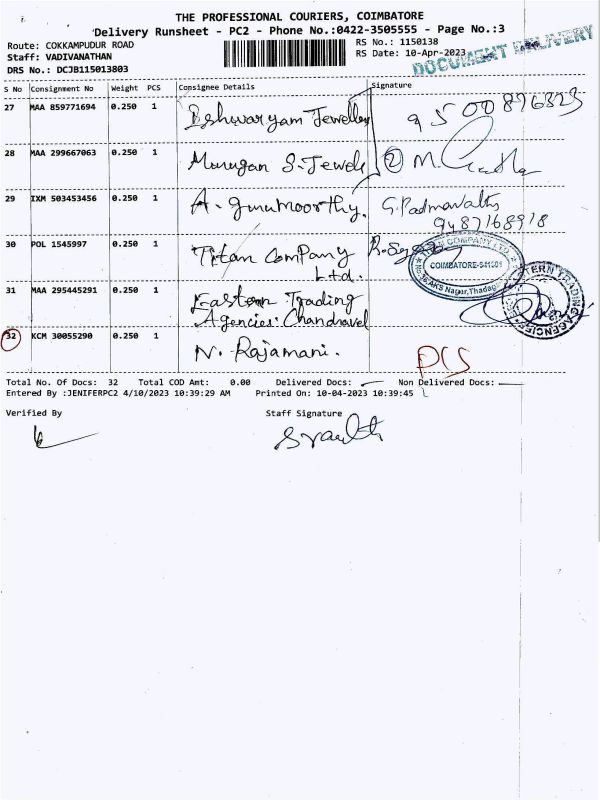 THE PROFESSIONAL COURIERS, COIMBATORE
Delivery Runsheet - PC2 - Phone No.:0422-3505555 - Page No.:3
Route: COKKAMPUDUR ROAD
RS No.: 1150138
Staff: VADIVANATHAN
RS Date: 10-Apr-2023
DOCUMENT DELIVERY
DRS No.: DCJB115013803
S No Consignment No Weight PCS Consignee Details Signature
27 MAA 859771694 0.250 1 Eshwaryam Jewellery 9500876323
28 MAA 299667063 0.250 1 Murugan S. Jewels 2 M.
29 IXM 503453456 0.250 1 A. gurumoorthy. G. Padmavathy
9487168918
30 POL 1545997 0.250 1 Titan Company
Ltd.
TITAN COMPANY LTD
COIMBATORE-641001
AKS Nagar, Thadagam
31 MAA 295445291 0.250 1 Eastern Trading
Agencies. Chandravel
EASTERN TRADING AGENCIES
32 KCM 30055290 0.250 1 N. Rajamani. PCS
Total No. Of Docs: 32 Total COD Amt: 0.00 Delivered Docs: Non Delivered Docs:
Entered By :JENIFERPC2 4/10/2023 10:39:29 AM Printed On: 10-04-2023 10:39:45
Verified By Staff Signature